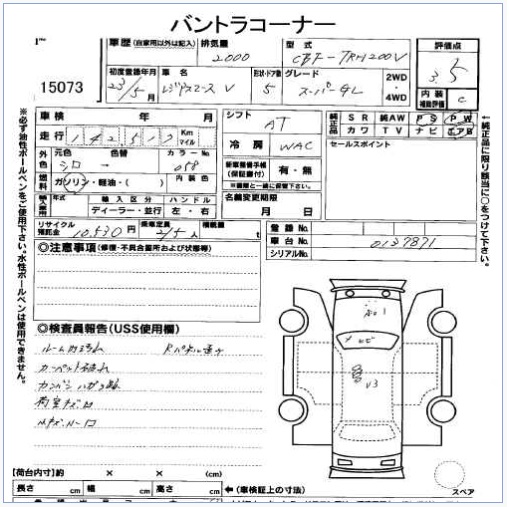 バントラコーナー
車歴 (自家用以外は記入)
排気量
2000
型式
CBF-TRH200V
評価点
3.5
15073
初度登録年月
23/5月
車名
レジアスエース V
形状・ドア数
5
グレード
スーパーGL
2WD
・
4WD
内装
補助評価
C
車検 年 月
シフト
AT
純正品
SR 純AW PS PW
カワ TV ナビ エアB
走行 142,517 Km マイル
冷房 WAC
セールスポイント
外色
元色
シロ
色替
→
カラーNo
058
燃料
ガソリン・軽油・( )
内装色
新車整備手帳
(保証書付)
有・無
※画面と一緒に保管下さい。
年式 輸入区分 ハンドル
ディーラー・並行 左・右
名義変更期限
月 日
リサイクル
預託金
10,530円
乗車定員
2/5人
積載量
t
登録No.
車台No. 0137871
シリアルNo.
※必ず油性ボールペンをご使用下さい。水性ボールペンは使用できません。
↑純正品に限り該当に○をつけて下さい。
◎注意事項(修復・不具合箇所および状態等)
◎検査員報告(USS使用欄)
ルーム内汚れ
荷室キズ・凹
V3
【荷台内寸】約 × × (cm)
長さ cm 幅 cm 高さ cm
←(車検証上の寸法)
スペア